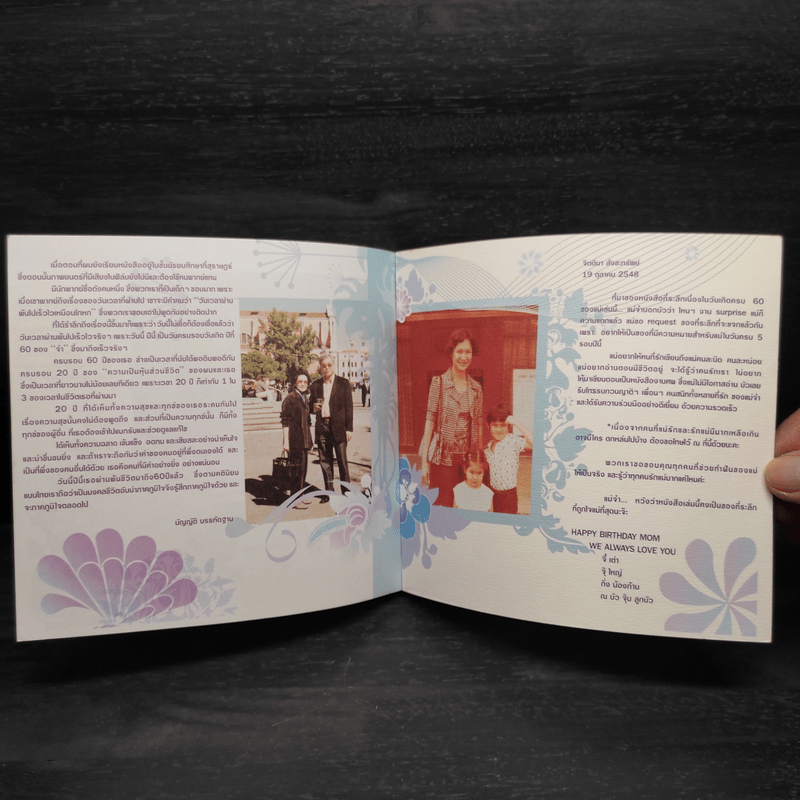 เมื่อตอนที่ผมยังเรียนหนังสืออยู่ในชั้นมัธยมศึกษาที่สุราษฎร์
ซึ่งตอนนั้นภาพยนตร์ที่มีเสียงในฟิล์มยังไม่มีและต้องใช้คนพากย์แทน
มีนักพากย์ชื่อดังคนหนึ่ง ซึ่งพวกเราที่เป็นเด็กๆ ชอบมาก เพราะ
เมื่อเขาพากย์ถึงเรื่องของวันเวลาที่ผ่านไป เขาจะมีคำคมว่า "วันเวลาผ่าน
พ้นไปเร็วไวเหมือนโกหก" ซึ่งพวกเราชอบเอาไปพูดกันอย่างติดปาก
ที่ได้รำลึกถึงเรื่องนี้ขึ้นมาก็เพราะว่าวันนี้ไม่เชื่อก็ต้องเชื่อแล้วว่า
วันเวลาผ่านพ้นไปเร็วไวจริงๆ เพราะวันนี้ ปีนี้ เป็นวันครบรอบวันเกิด ปีที่
60 ของ "จ๋า" ซึ่งมาถึงเร็วจริงๆ
ครบรอบ 60 ปีของเธอ ช่างเป็นเวลาที่นับได้พอดิบพอดีกับ
ครบรอบ 20 ปี ของ "ความเป็นหุ้นส่วนชีวิต" ของผมและเธอ
ซึ่งเป็นเวลาที่ยาวนานไม่น้อยเลยทีเดียว เพราะเวลา 20 ปี ก็เท่ากับ 1 ใน
3 ของเวลาในชีวิตเธอที่ผ่านมา
20 ปี ที่ได้เห็นทั้งความสุขและทุกข์ของเธอระคนกันไป
เรื่องความสุขนั้นคงไม่ต้องพูดถึง และส่วนที่เป็นความทุกข์นั้น ก็มีทั้ง
ทุกข์ของผู้อื่น ที่เธอต้องเข้าไปแบกรับและช่วยดูแลแก้ไข
ได้เห็นทั้งความฉลาด เข้มแข็ง อดทน และเสียสละอย่างน่าเห็นใจ
และน่าชื่นชมยิ่ง และถ้าเราจะถือกันว่าค่าของคนอยู่ที่พึ่งตนเองได้ และ
เป็นที่พึ่งของคนอื่นได้ด้วย เธอคือคนที่มีค่าอย่างยิ่ง อย่างแน่นอน
วันนี้ปีนี้เธอผ่านพ้นชีวิตมาถึง60ปีแล้ว ซึ่งตามคตินิยม
แบบไทยเราถือว่าเป็นมงคลชีวิตอันน่าภาคภูมิใจจึงรู้สึกภาคภูมิใจด้วย และ
จะภาคภูมิใจตลอดไป
บัญญัติ บรรทัดฐาน
จิตติมา สังขะทรัพย์
19 ตุลาคม 2548
ที่มาของหนังสือที่ระลึกเนื่องในวันเกิดครบ 60
ของแม่เล่มนี้... แม่จ๋าบอกบัวว่า ไหนๆ งาน surprise แม่ก็
ความแตกแล้ว แม่ขอ request ของที่ระลึกที่จะแจกแล้วกัน
เพราะ อยากให้เป็นของที่มีความหมายสำหรับแม่ในวันครบ 5
รอบปีนี้
แม่อยากให้คนที่รักเขียนถึงแม่คนละนิด คนละหน่อย
แม่อยากอ่านตอนมีชีวิตอยู่ จะได้รู้ว่าคนรักเรา ไม่อยาก
ให้มาเขียนตอนเป็นหนังสืองานศพ ซึ่งแม่ไม่มีโอกาสอ่าน บัวเลย
รับโทรรบกวนญาติๆ เพื่อนๆ คนสนิททั้งหลายที่รัก ของแม่จ๋า
และได้รับความร่วมมืออย่างดีเยี่ยม ด้วยความรวดเร็ว
*เนื่องจากคนที่แม่รักและรักแม่มีมากเหลือเกิน
อาจมีใคร ตกหล่นไปบ้าง ต้องขอโทษไว้ ณ ที่นี้ด้วยนะคะ
พวกเราขอขอบคุณทุกคนที่ช่วยทำฝันของแม่
ให้เป็นจริง และรู้ว่าทุกคนรักแม่มากแค่ไหนค่ะ
แม่จ๋า... หวังว่าหนังสือเล่มนี้คงเป็นของที่ระลึก
ที่ถูกใจแม่ที่สุดนะจ๊ะ
HAPPY BIRTHDAY MOM
WE ALWAYS LOVE YOU
จี้ เต่า
จุ๊ ใหญ่
กิ่ง น้องก้าน
ณ บัว จุ้น ลูกบัว